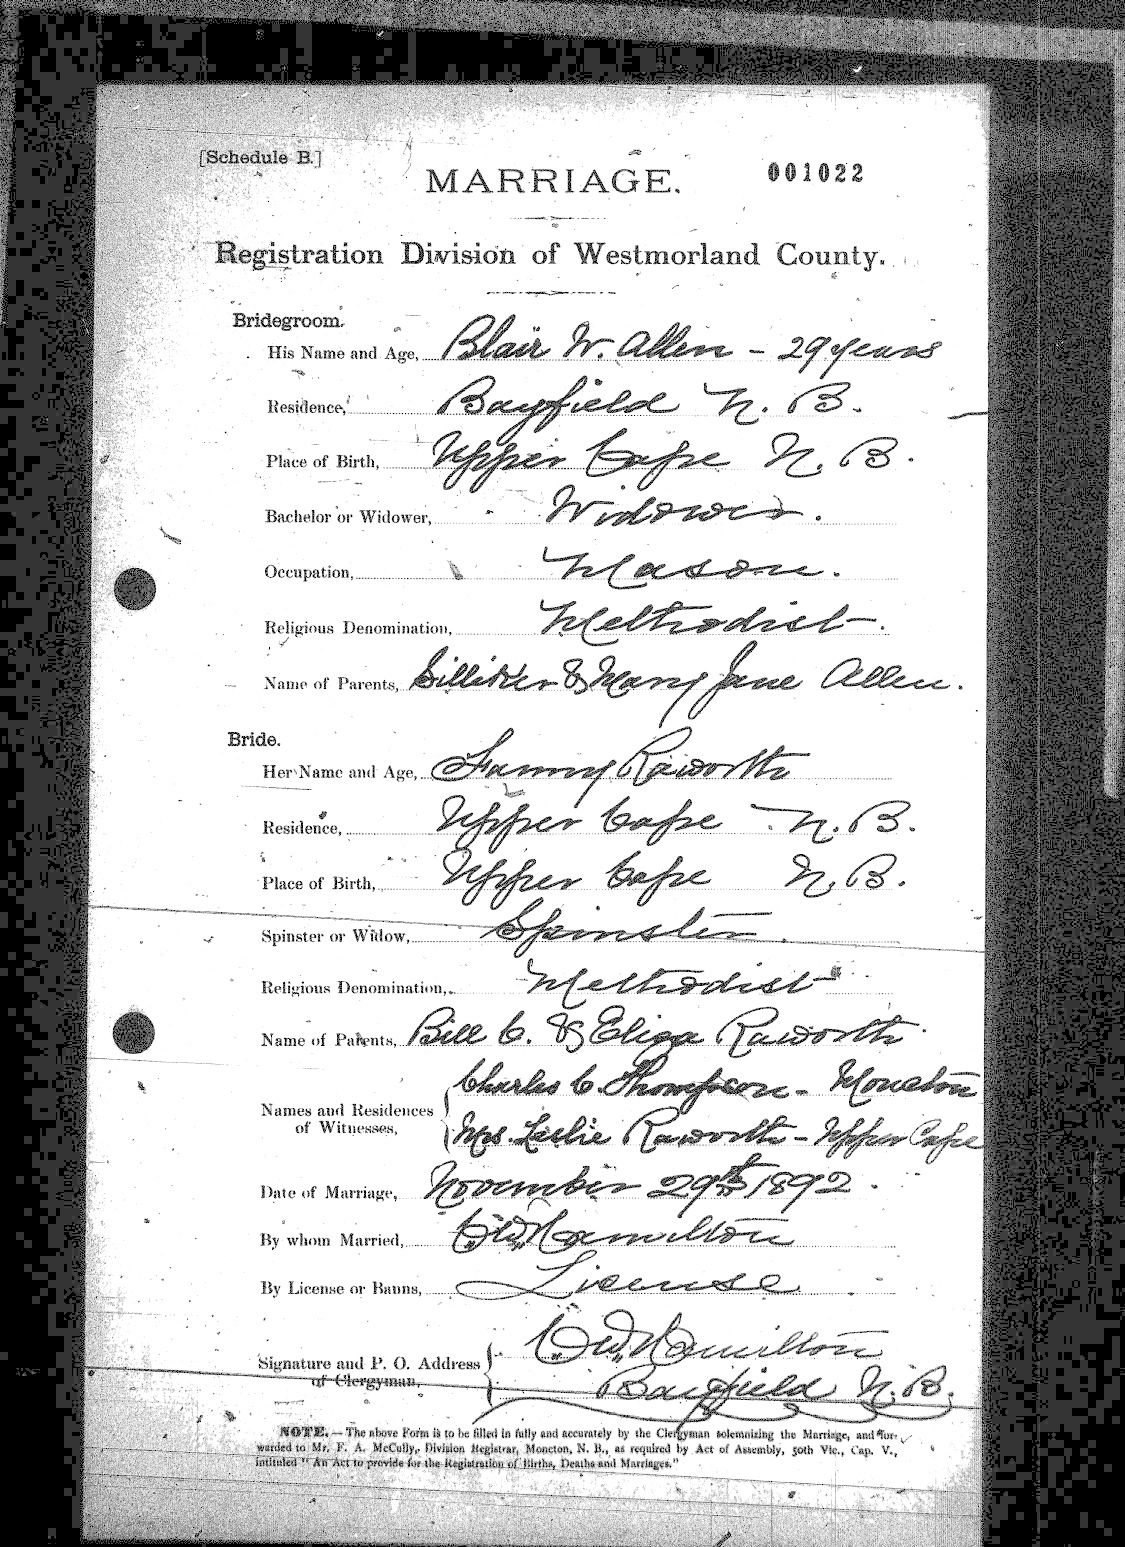 [Schedule B.]
MARRIAGE.
001022
Registration Division of Westmorland County.
Bridegroom.
His Name and Age, Blair W. Allen - 29 years
Residence, Bayfield N. B.
Place of Birth, Upper Cape N. B.
Bachelor or Widower, Widower.
Occupation, Mason.
Religious Denomination, Methodist.
Name of Parents, & Mary Jane Allen.
Bride.
Her Name and Age, Fanny Raworth
Residence, Upper Cape N. B.
Place of Birth, Upper Cape N. B.
Spinster or Widow, Spinster.
Religious Denomination, Methodist
Name of Parents, Bill C. & Eliza Raworth
Charles C. Thompson - Moncton
Names and Residences
of Witnesses,
Mrs. Leslie Raworth - Upper Cape
Date of Marriage, November 29th 1892.
By whom Married, Hamilton
By License or Banns, License
Hamilton
Signature and P. O. Address
of Clergyman,
Bayfield N. B.
NOTE. — The above Form is to be filled in fully and accurately by the Clergyman solemnizing the Marriage, and for-
warded to Mr. F. A. McCully, Division Registrar, Moncton, N. B., as required by Act of Assembly, 50th Vic., Cap. V.,
intituled "An Act to provide for the Registration of Births, Deaths and Marriages."